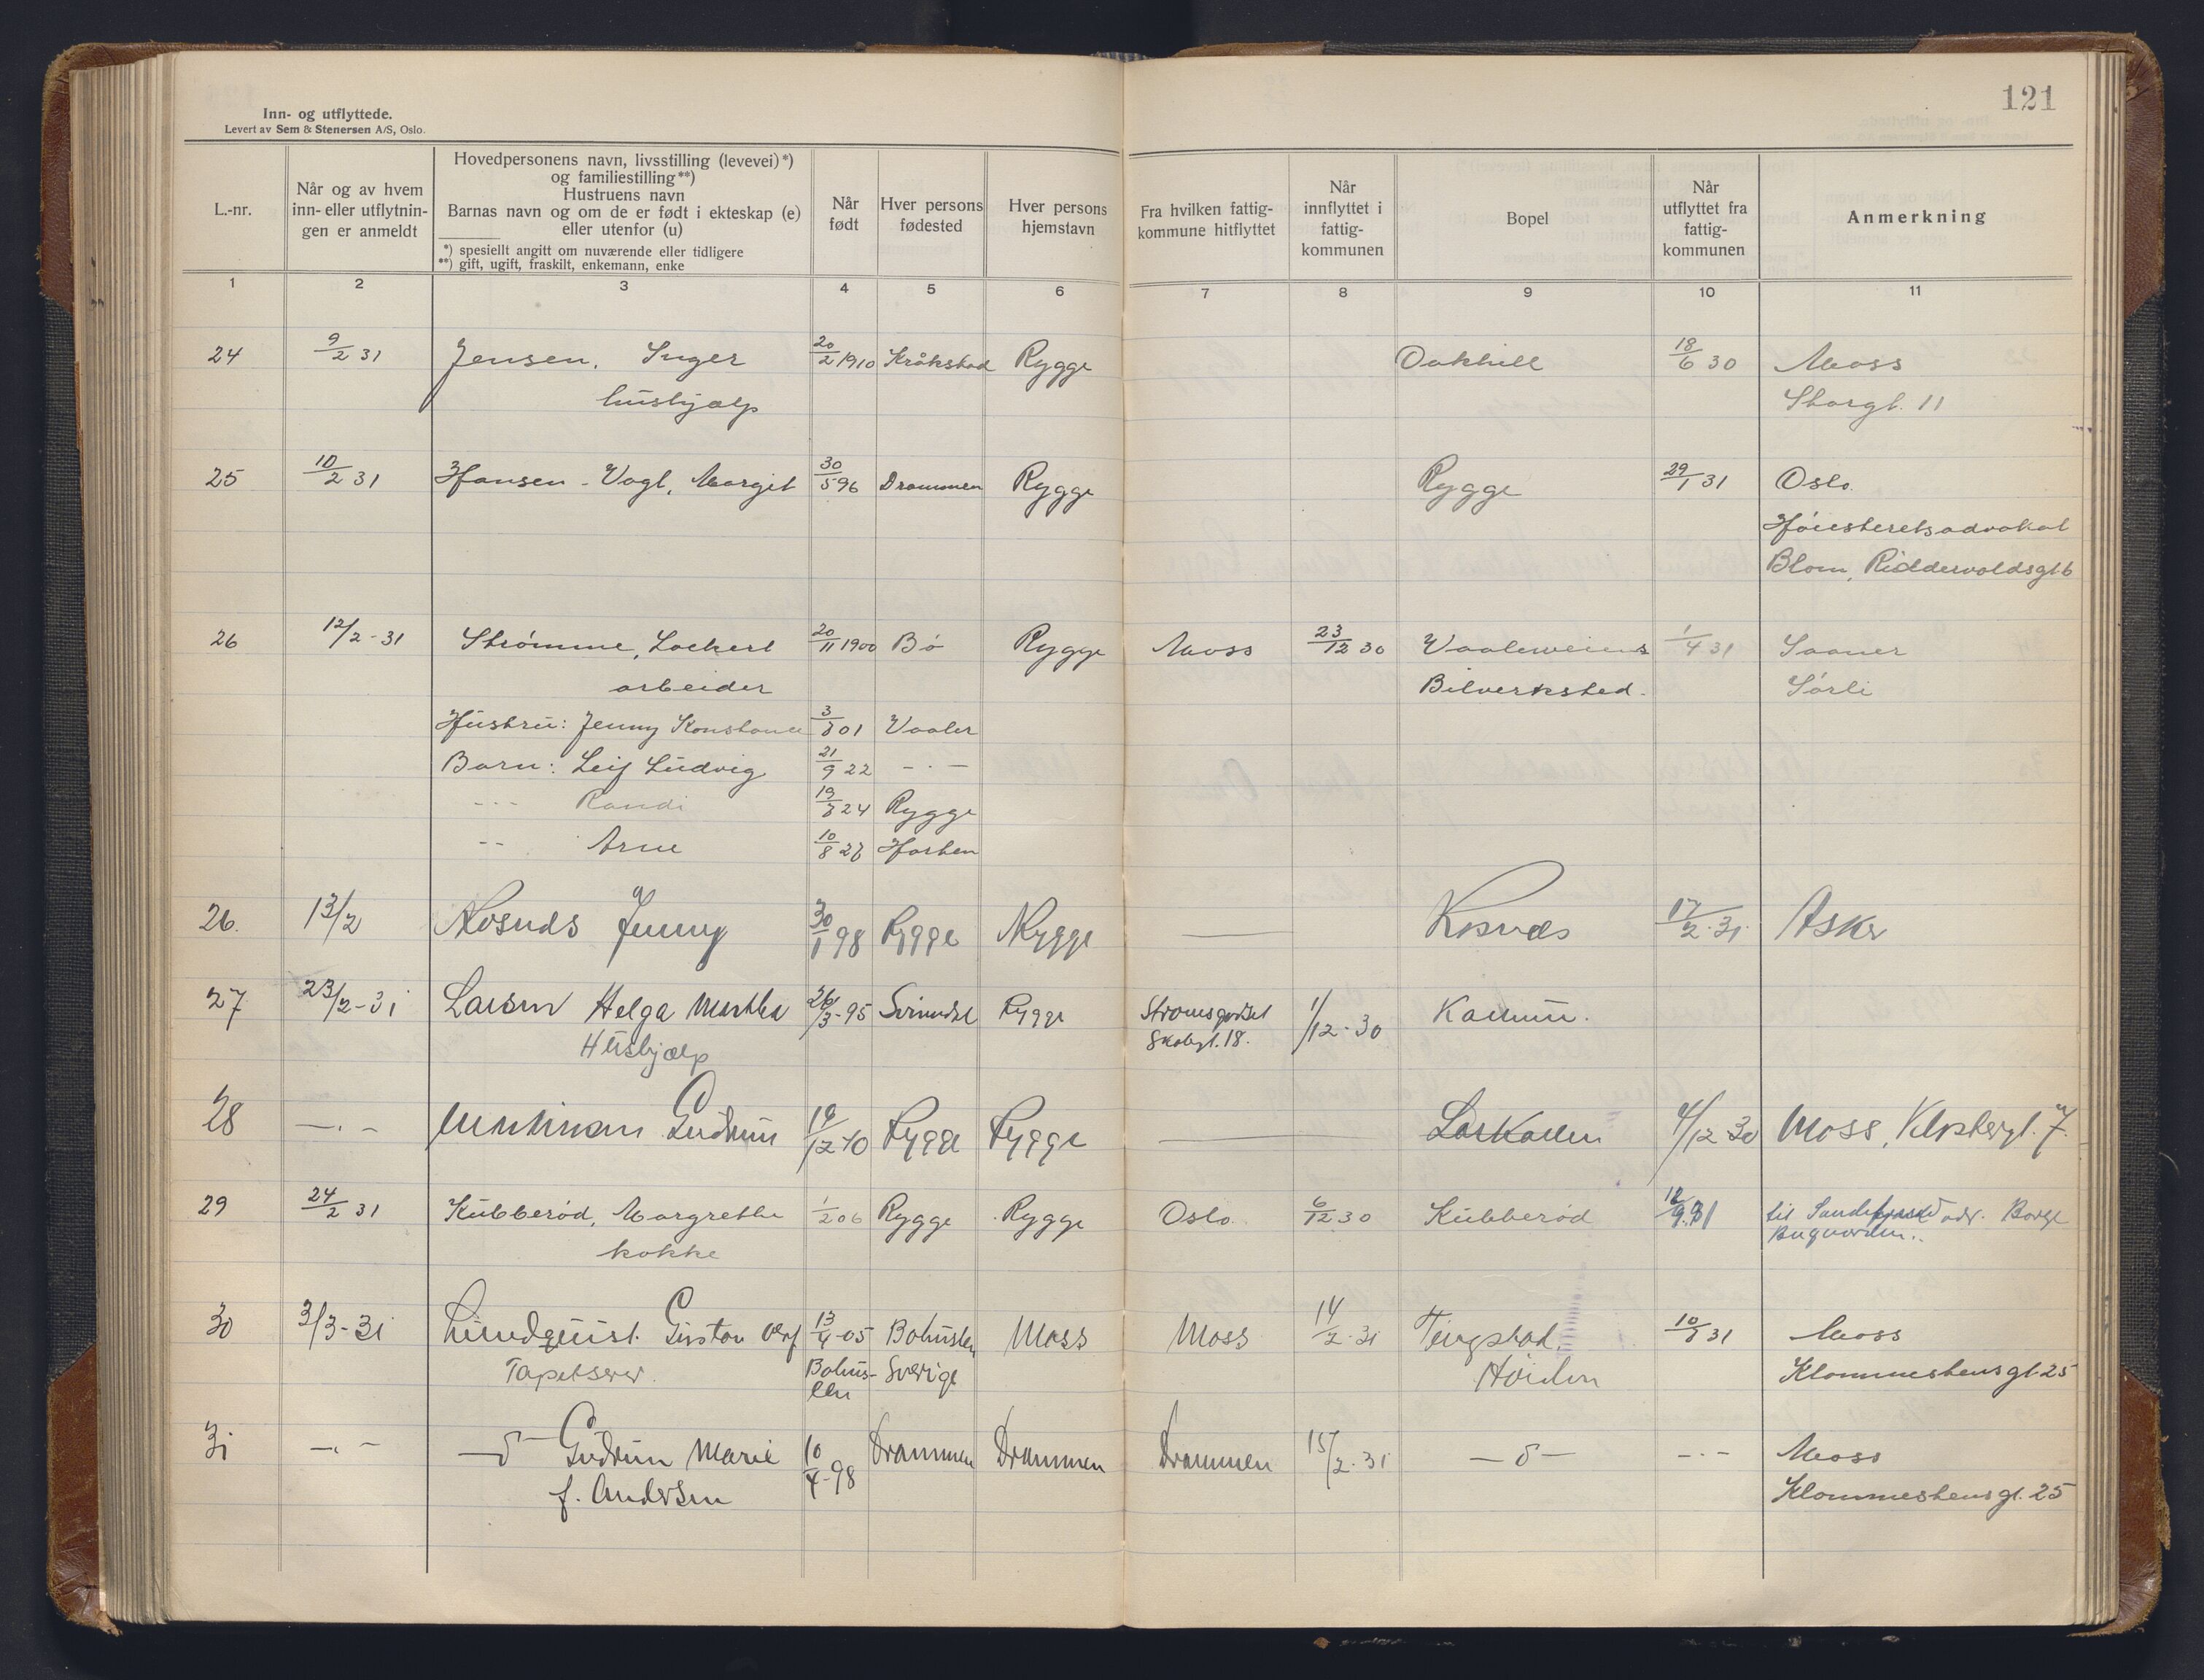 121
Inn- og utflyttede.
Levert av Sem & Stenersen A/S, Oslo.
L.-nr.
Når og av hvem
inn- eller utflytnin-
gen er anmeldt
Hovedpersonens navn, livsstilling (levevei)*)
og familiestilling**)
Hustruens navn
Barnas navn og om de er født i ekteskap (e)
eller utenfor (u)
*) spesiellt angitt om nuværende eller tidligere
**) gift, ugift, fraskilt, enkemann, enke
Når
født
Hver persons
fødested
Hver persons
hjemstavn
Fra hvilken fattig-
kommune hitflyttet
Når
innflyttet i
fattig-
kommunen
Bopel
Når
utflyttet fra
fattig-
kommunen
Anmerkning
1 2 3 4 5 6 7 8 9 10 11
24 9/2 31 Jensen, Inger 20/2 1910 Kråkstad Rygge Oakhill 18/6 30 Moss
hushjælp Storgt. 11
25 10/2 31 Hansen - Vogt, Margit 30/5 96 Drammen Rygge Rygge 29/1 31 Oslo.
Høiesteretsadvokat
Blom, Riddervoldsgt 6
26 12/2 - 31 Strømme, Lockert 20/11 1900 Bø Rygge Moss 23/12 30 Vaalerveiens 1/4 31 Saaner
arbeider Bilverksted. Sørli
Hustru: Jenny Konstance 01 Vaaler
Barn: Leif Ludvig 21/9 22 - · -
- - - Randi 24 Rygge
- - Arne Horten
26. 13/2 Rosnæs Jenny 30/1 98 Rygge Rygge — Rosnæs 17/2 - 31 Asker
27 23/2 - 31 Larsen Helga Martha 26/3 - 95 Svinndal Rygge Strømsgodset 1/12 - 30 Kallum.
Hushjælp Skolegt. 18.
28 - · - Gudrun Rygge Rygge — Larkollen 4/12 30 Moss, 7.
29 24/2 31 Kubberød, Margrethe 1/2 06 Rygge Rygge Oslo. 6/12 30 Kubberød 12/9 31 til Sandefjord adr.
kokke
30 3/3 - 31 Lundquist. Gustav 13/4 - 05 Bohuslen Moss Moss 14/2 - 31 Tingstad, 31 Moss
Tapetserer. Bohus- Sverige Høiden Klommestensgt. 25
len
31 - · - — d — Gudrun Marie 10/4 - 98 Drammen Drammen Drammen 15/2 - 31 — d — - · - Moss
f. Andersen Klommestensgt. 25